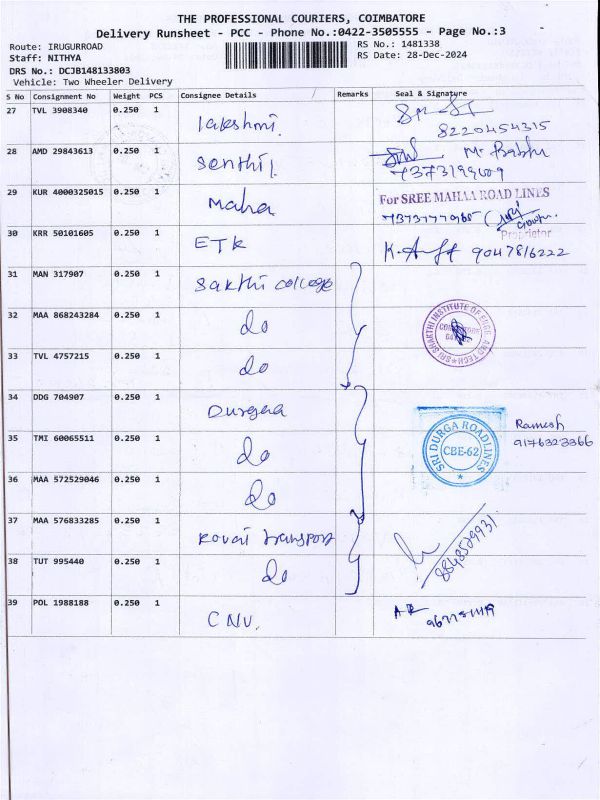 THE PROFESSIONAL COURIERS, COIMBATORE
Delivery Runsheet - PCC - Phone No.:0422-3505555 - Page No.:3
Route: IRUGURROAD
RS No.: 1481338
Staff: NITHYA
RS Date: 28-Dec-2024
DRS No.: DCJB148133803
Vehicle: Two Wheeler Delivery
S No Consignment No Weight PCS Consignee Details Remarks Seal & Signature
27 TVL 3908340 0.250 1 lakshmi. 8220454315
28 AMD 29843613 0.250 1 Senthil Mr Babhu
29 KUR 4000325015 0.250 1 Maha For SREE MAHAA ROAD LINES
Proprietor
30 KRR 50101605 0.250 1 ETK 9047816222
31 MAN 317907 0.250 1 Sakthi college
32 MAA 868243284 0.250 1 do SRI SHAKTHI INSTITUTE OF ENGG AND TECH
33 TVL 4757215 0.250 1 do
34 DDG 704907 0.250 1 Durgaa Ramesh
35 TMI 60065511 0.250 1 do SRI DURGA ROADLINES CBE-62 9176323366
36 MAA 572529046 0.250 1 do
37 MAA 576833285 0.250 1 Kovai transport
38 TUT 995440 0.250 1 do 8848529931
39 POL 1988188 0.250 1 CNV.